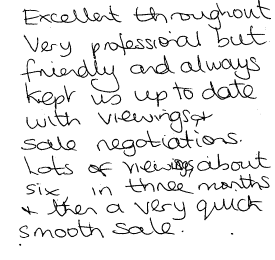 Excellent throughout
Very professional but
friendly and always
kept us up to date
with viewings &
sale negotiations.
Lots of viewings about
six in three months
& then a very quick
smooth sale.